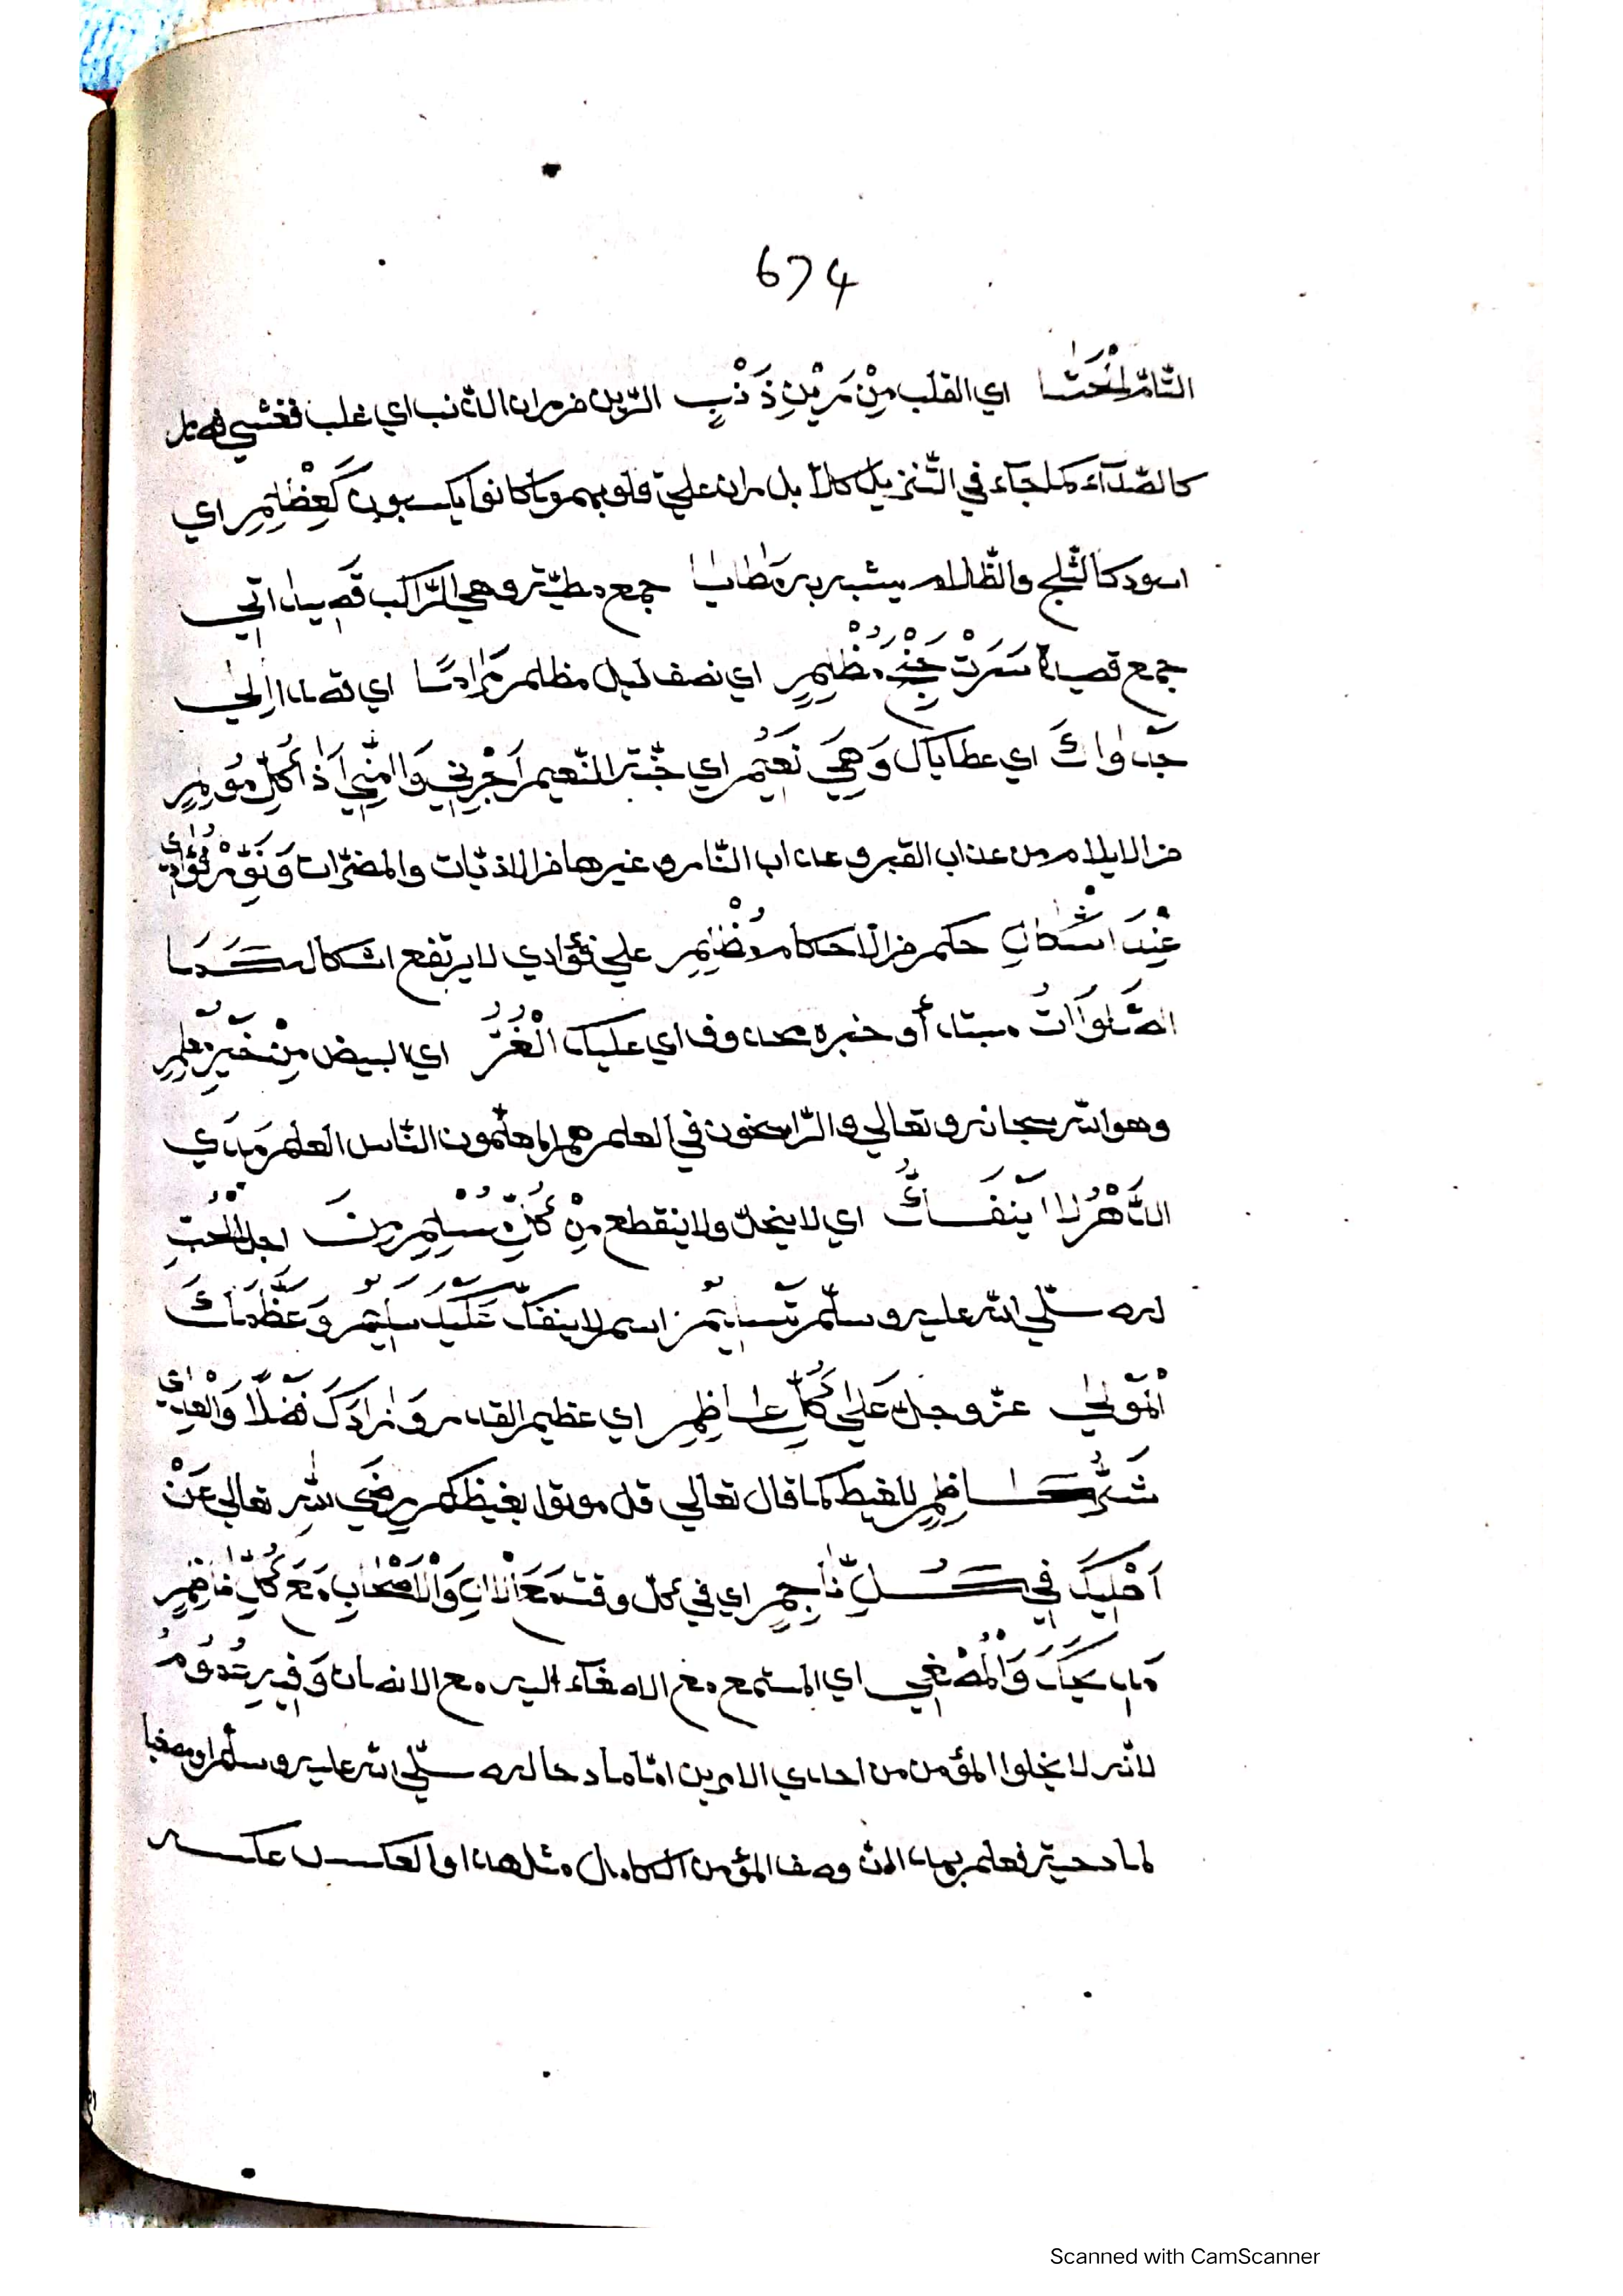 674
اي القلب مِنْ رَيْنِ ذَنْبٍ الرّين من ران الذنب اي غلب فغشي فصار
كالصّدآء كما جآء في التّنزيل كلّا بل ران علي قلوبهم ما كانوا يكسبون كَعِظْلِمِ اي
اسود كالثلج والظلام يشبه به مَطَايَا جمع مطيّة وهي المراكب قَصِيدَاتِي
جمع قصيدة سَرَتْ جُنْحَ مُظْلِمٍ اي نصف ليل مظلم مَرَادًا اي قصدا اِلٰي
جَدْوَاكَ اي عطاياك وَهِيَ نَعِيمُ اي جنّة النّعيم اَجِرْنِي وَامْنَحْنِي اَذٰا كُلِّ مُؤلِمٍ
من الايلام من عذاب القبر وعذاب النّار وغيرها من الاذيّات والمضرّات وَنَوِّرْ فُؤَادِي
عِنْدَ اشْكَالِ حكم من الاحكام مُظْلِمِ علي فؤادي لا يرتفع اشكاله كَذَا
الصَّلَوَاتُ مبتدأ وخبره محذوف اي عليك الْغُرُّ اي البيض مِنْ خَيْرِ مُعَلِّمِ
وهو الله سبحانه وتعالي والرّاسخون في العلم هم المعلّمون النّاس العلم مَدَي
الدَّهْرِ لَا يَنْفَكُّ اي لا ينحلّ ولا ينقطع مِنْ كُلِّ مُسْلِمٍ مِنْ اجل الْحُبِّ
له صلّي الله عليه وسلّم تَسْلِيمٌ اسم لا ينفكّ عَلَيْكَ سَلِيمٌ وَعَظَّمَكَ
الْمَوْلٰي عزّ وجلّ عَلٰي كُلِّ عَاظِمِ اي عظيم القدر وَزَادَكَ فَضْلًا وَالْعِدَي
كَاظِمِ للغيظ كما قال تعالي قل موتوا بغيظكم رَضِي اللهُ تعالي عَنْ
اَهْلِيكَ فِي كُلِّ نَاجِمِ اي في كلّ وقت مَعَ الْاٰلِ وَالْاَصْحَابِ مَعَ كُلِّ نَاظِمِ
مَدِيحَكَ وَالْمُصْغِي اي المستمع مع الاصغآء اليه مع الانصات وَفِيهِ تَدُومُ
لانّه لا يخلوا المؤمن من احدي الامرين امّا مادحا له صلّي الله عليه وسلّم او مصغيا
لمادحيه فعلم بهذا انّ وصف المؤمن الكامل مثل هذا والعكس عكس
Scanned with CamScanner